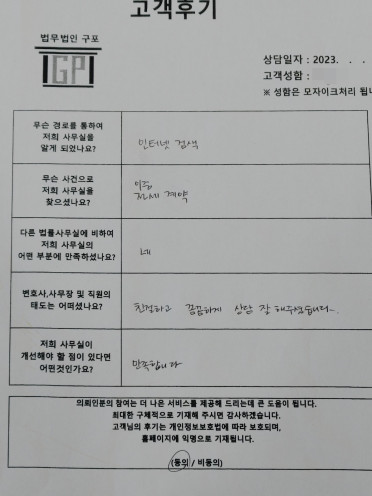 고객후기
법무법인 구포
GP
상담일자 : 2023. . .
고객성함 :
※ 성함은 모자이크처리 됩니
무슨 경로를 통하여
저희 사무실을
알게 되었나요?
인터넷 검색
무슨 사건으로
저희 사무실을
찾으셨나요?
이중
전세 계약
다른 법률사무실에 비하여
저희 사무실의
어떤 부분에 만족하셨나요?
네
변호사,사무장 및 직원의
태도는 어떠셨나요?
친절하고 꼼꼼하게 상담 잘 해주셨습니다...
저희 사무실이
개선해야 할 점이 있다면
어떤것인가요?
만족합니다
의뢰인분의 참여는 더 나은 서비스를 제공해 드리는데 큰 도움이 됩니다.
최대한 구체적으로 기재해 주시면 감사하겠습니다.
고객님의 후기는 개인정보보호법에 따라 보호되며,
홈페이지에 익명으로 기재됩니다.
(동의 / 비동의)